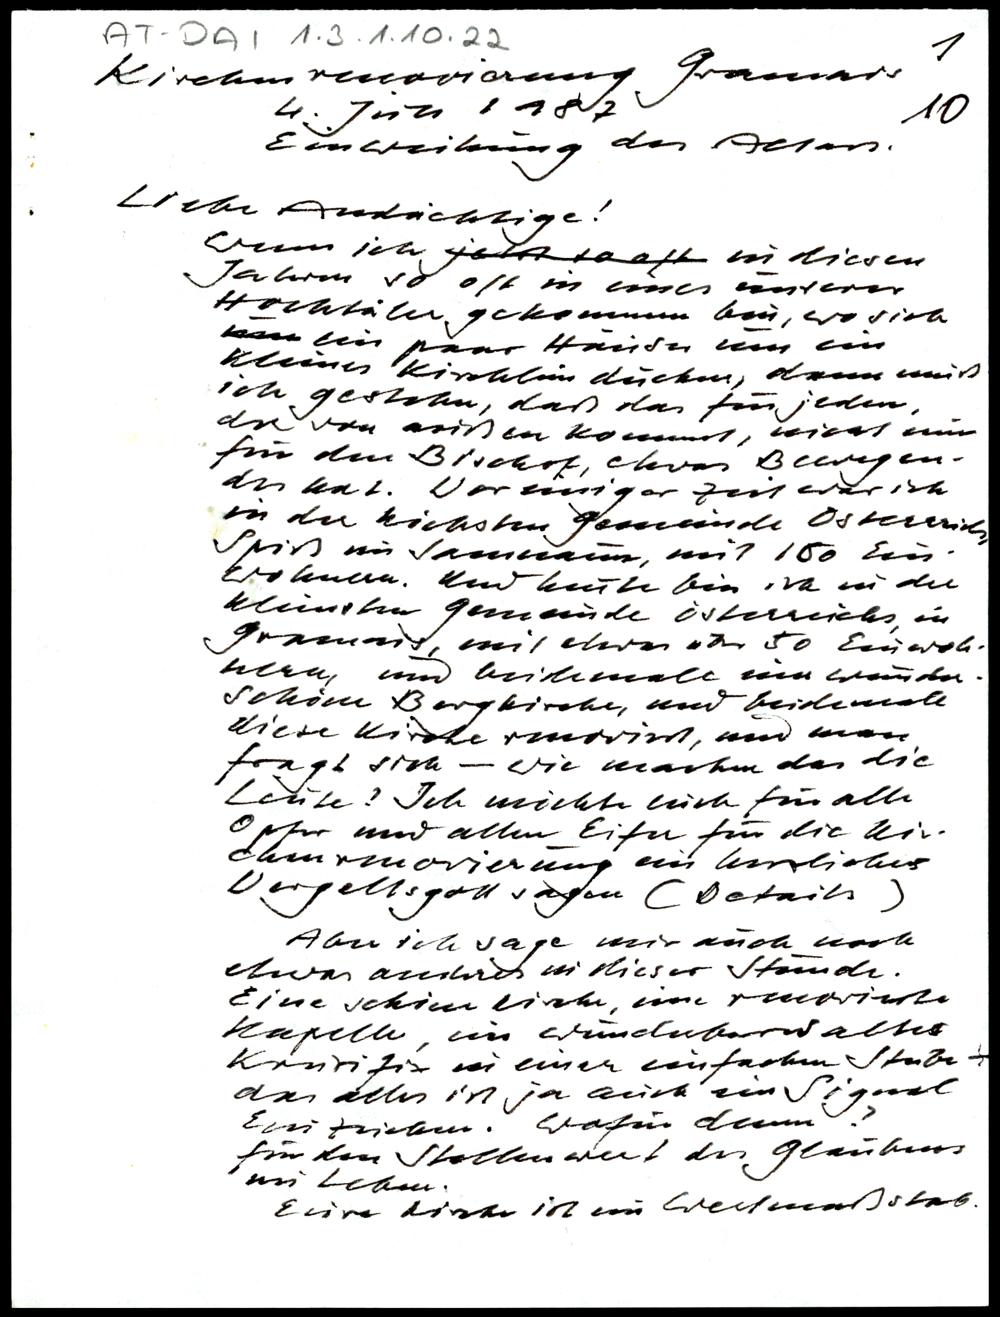 AT-DAI 1.3.1.10.22
1
Kirchenrenovierung Gramais
4. Juli 1987
10
Einweihung des Altars.
Liebe Andächtige!
Wenn ich jetzt so oft in diesen
Jahren so oft in eines unserer
Hochtäler gekommen bin, wo sich
nun ein paar Häuser um ein
kleines Kirchlein ducken, dann muß
ich gestehn, daß das für jeden,
der von außen kommt, nicht nur
für den Bischof, etwas Bewegen-
des hat. Vor einiger Zeit war ich
in der höchsten Gemeinde Österreichs,
Spiß im Samnaun, mit 150 Ein-
wohnern. Und heute bin ich in der
kleinsten Gemeinde Österreichs, in
Gramais, mit etwas über 50 Einwoh-
nern, und beidemale eine wunder-
schöne Bergkirche, und beidemale
diese Kirche renoviert, und man
fragt sich – wie machen das die
Leute? Ich möchte euch für alle
Opfer und allen Eifer für die Kir-
chenrenovierung ein herzliches
Vergeltsgott sagen (Details)
Aber ich sage mir auch noch
etwas anderes in dieser Stunde.
Eine schöne Kirche, eine renovierte
Kapelle, ein wunderbares altes
Kruzifix in einer einfachen Stube –
das alles ist ja auch ein Signal
Ein Zeichen. Wofür denn?
für den Stellenwert des Glaubens
im Leben.
Eure Kirche ist ein Wertmaßstab.